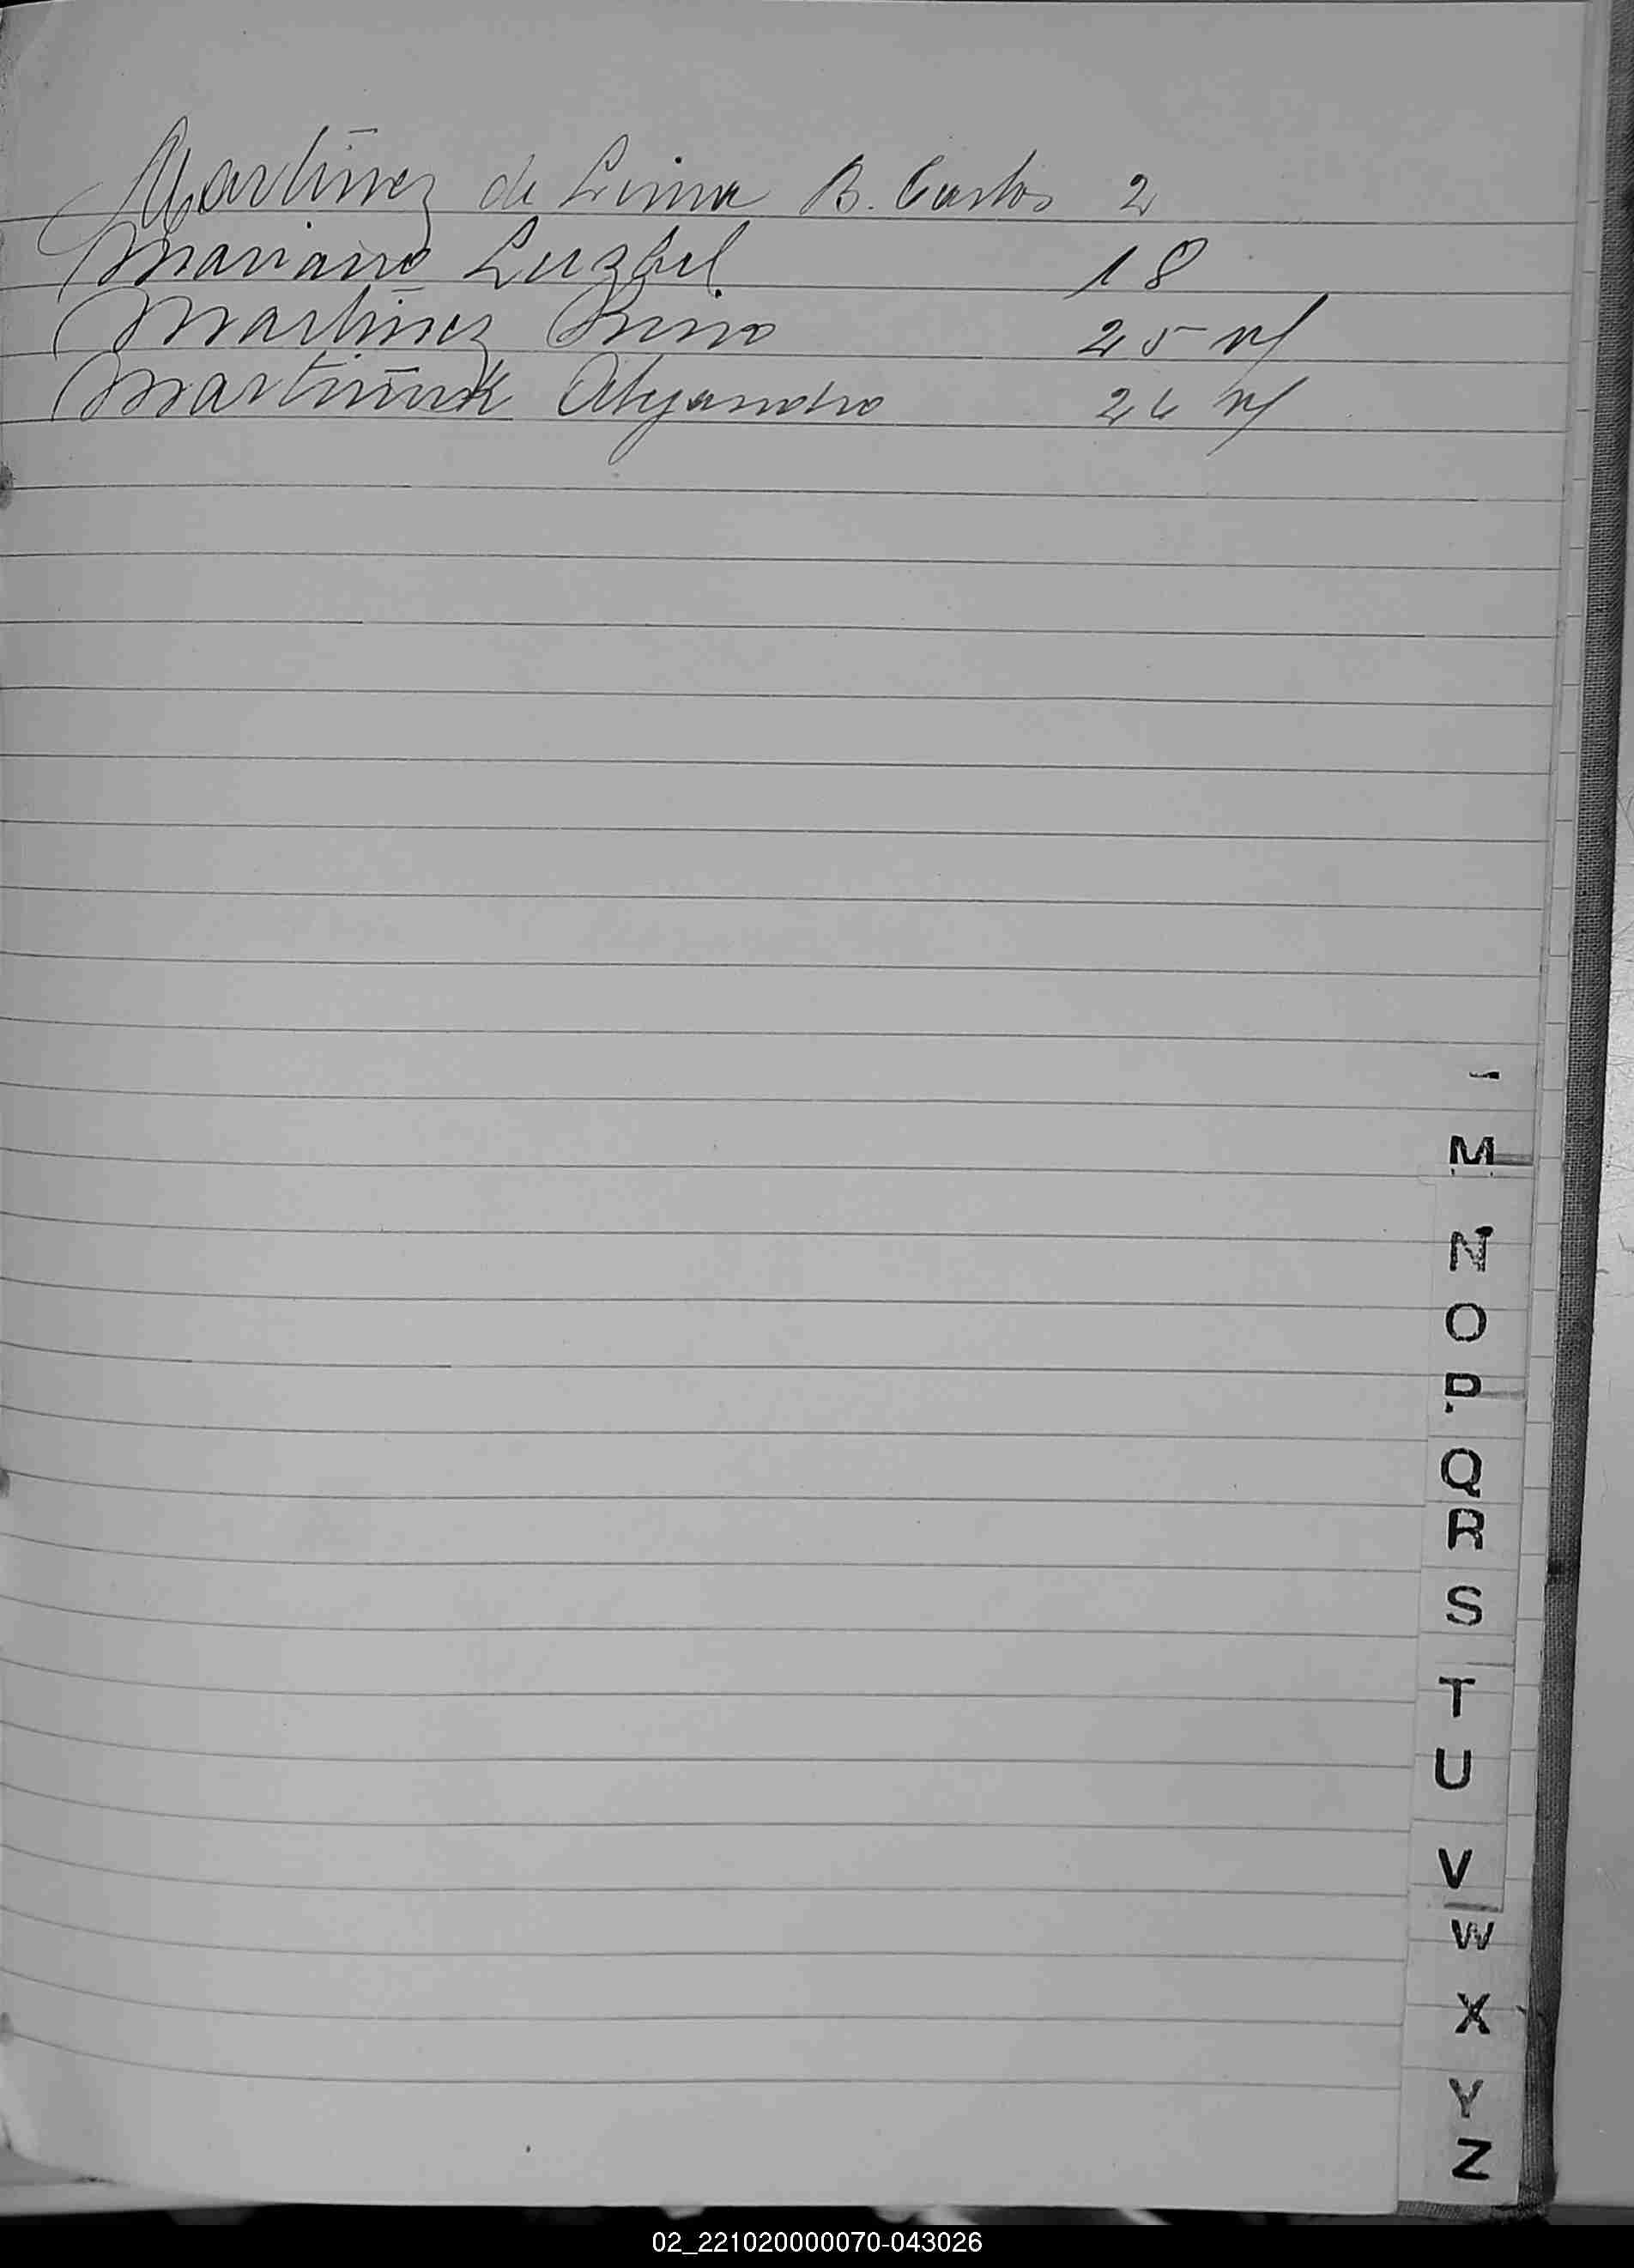 Martinez de Lima B. Carlos 2
Mariano Luzbel 18
Martinez 25 v/
Alejandro 26 v/
M
N
O
P
Q
R
S
T
U
V
W
X
Y
Z
02_221020000070-043026